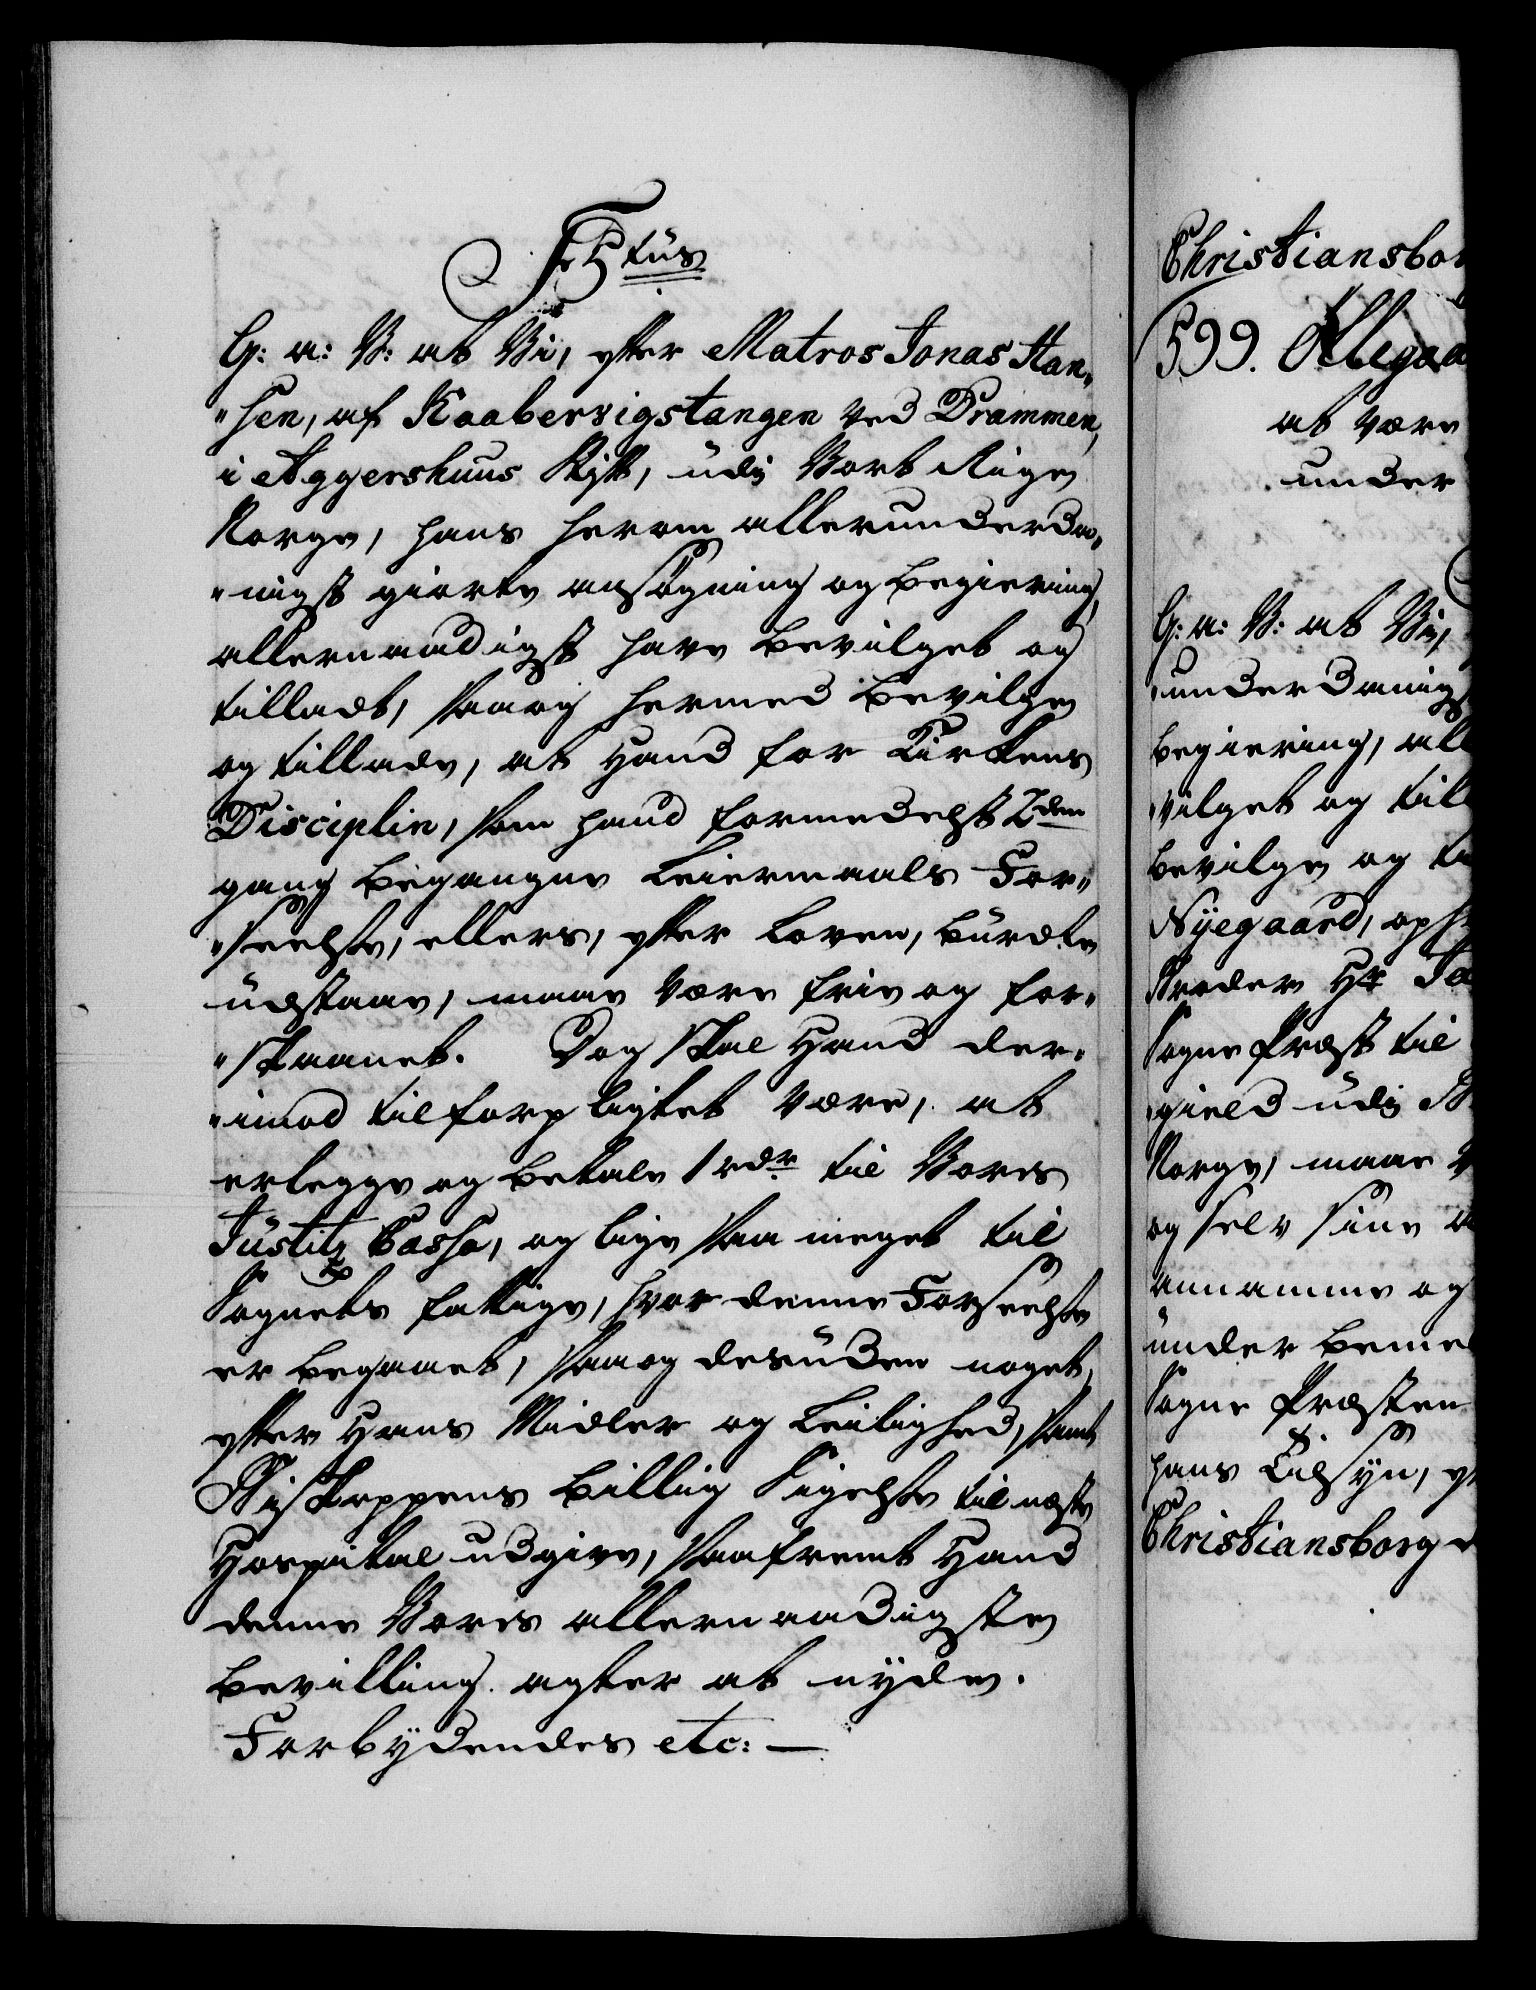 F: 5tus
G: a: V: at Vi, efter Matros Jonas Han„
„sen, af Kaabervigstangen ved Drammen,
i Aggershuus Stift, udi Vort Rige
Norge, hans herom allerunderda„
„nigst giorte ansøgning og begiering,
allernaadigst have bevilget og
tilladt, saa og hermed bevilge
og tillade, at Hand for Kirkens
Disciplin, som hand formedelst 2den
gang begangne Leiermaals For„
„seelse, ellers, efter Loven, burdte
udstaae, maae være frie og for„
„skaanet. Dog skal Hand der„
„imod tilforpligtet være, at
erlegge og betale 1 rdr til Vores
Justitz Cassa, og lige saa meget til
Sognets fattige, hvor denne Forseelse
er begaaet, saa og desuden noget,
efter Hans Midler og Leilighed, samt
Biskoppens billig Sigelse til næste
Hospital udgive, saafremt Hand
denne Vores allernaadigste
bevilling agter at nyde.
Forbydendes etc: —
Christiansbor
599. Ollegaa
at være
under
G: a: V: at Vi,
underdanigs
begiering, all
vilget og till
bevilge og ti
Nyegaard, ops
Broder Hr
Sogne Præst til
gield udi
Norge, maae
og selv sine
annamme og
under beme
Sogne Præsten
hans Tilsyn,
Christiansborg